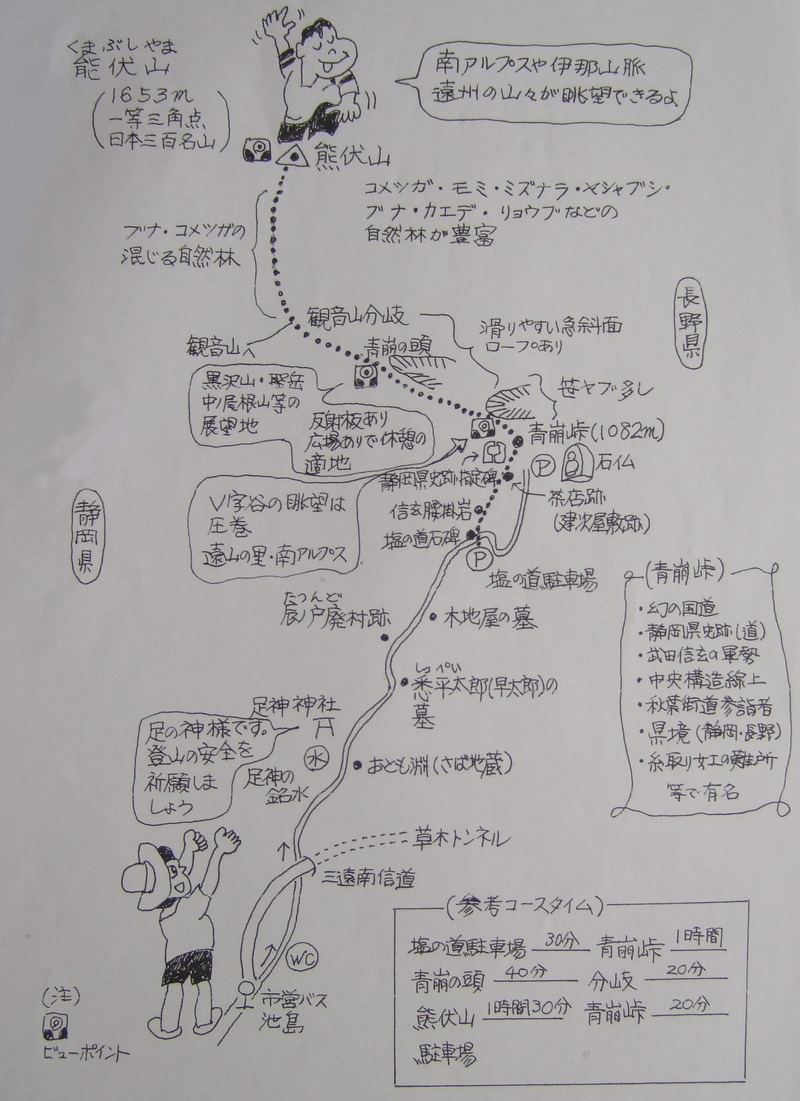 くまぶしやま
熊伏山
1653m
一等三角点
日本三百名山
南アルプスや伊那山脈
遠州の山々が眺望できるよ
熊伏山
コメツガ・モミ・ミズナラ・ヤシャブシ・
ブナ・カエデ・リョウブなどの
自然林が豊富
ブナ・コメツガの
混じる自然林
長野県
観音山分岐
観音山へ
滑りやすい急斜面
ロープあり
青崩の頭
黒沢山・聖岳
中ノ尾根山等の
展望地
笹ヤブ多し
反射板あり
広場ありで休憩の
適地
青崩峠(1082m)
P
石仏
静岡県史跡指定碑
茶店跡
(建次屋敷跡)
静岡県
V字谷の眺望は
圧巻
遠山の里・南アルプス
信玄腰掛岩
塩の道石碑
P
塩の道駐車場
たつんど
辰ノ戸廃村跡
木地屋の墓
(青崩峠)
・幻の国道
・静岡県史跡(道)
・武田信玄の軍勢
・中央構造線上
・秋葉街道参詣者
・県境(静岡・長野)
・糸取り女工の難所
等で有名
しっぺい
悉平太郎(早太郎)の
墓
足神神社
足の神様です。
登山の安全を
祈願しま
しょう
水
足神の
銘水
おとも淵(さば地蔵)
草木トンネル
三遠南信道
WC
市営バス
池島
(注)
ビューポイント
(参考コースタイム)
塩の道駐車場 30分 青崩峠 1時間
青崩の頭 40分 分岐 20分
熊伏山 1時間30分 青崩峠 20分
駐車場